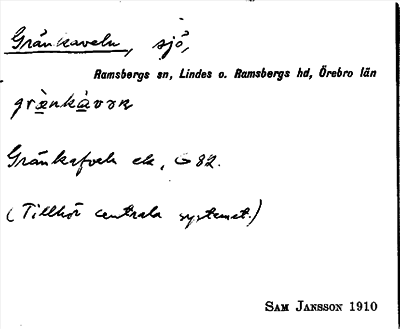 Gränkaveln, sjö,
Ramsbergs sn, Lindes o. Ramsbergs hd, Örebro län
Gränkafveln ek, G 82.
(Tillhör centrala systemet.)
SAM JANSSON 1910